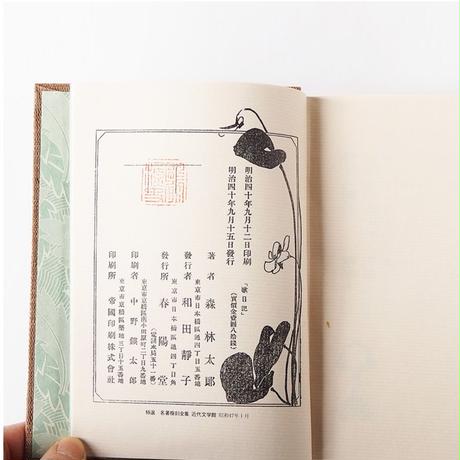 明治四十年九月十二日印刷
明治四十年九月十五日發行
『歌日記』
(實價金壹圓八拾錢)
著者 森林太郎
東京市日本橋區通四丁目五番地
發行者 和田靜子
東京市日本橋區通四丁目角
發行所 春陽堂
(電話本局五十一番)
東京市京橋區南小田原町二丁目九番地
印刷者 中野鍈太郎
東京市京橋區築地三丁目十五番地
印刷所 帝國印刷株式會社
特選 名著複刻全集 近代文学館 昭和47年1月